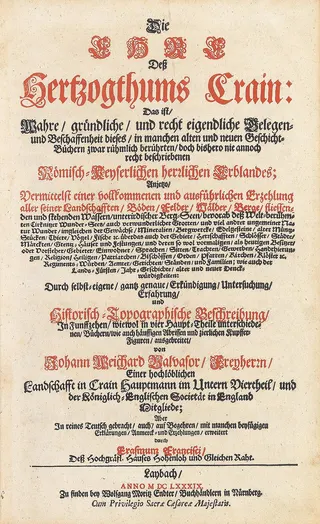 Die
EHRE
Deß
Hertzogthums Crain:
Das ist/
Wahre/ gründliche/ und recht eigendliche Belegen-
und Beschaffenheit dieses/ in manchen alten und neuen Geschicht-
Büchern zwar rühmlich berührten/ doch bishero nie annoch
recht beschriebenen
Römisch-Keyserlichen herrlichen Erblandes;
Anjetzo/
Vermittelst einer vollkommenen und ausführlichen Erzehlung
aller seiner Landschafften/ Böden/ Felder/ Wälder/ Berge/ fliessen-
den und stehenden Wassern/ unterirdischer Berg-Seen/ bevorab deß Welt-berühm-
ten Circknitzer Wunder-Sees/ auch verwunderlicher Grotten/ und viel andrer ungemeiner Na-
tur-Wunder/ imgleichen der Gewächse/ Mineralien/ Bergwercke/ Edelgesteine/ alter Müntz-
Stücken/ Thiere/ Vögel/ Fische &c. überdas auch der Gebiete/ Herrschafften/ Schlösser/ Städte/
Märckten/ Gräntz-Häuser und Festungen/ und deren so wol vormaligen/ als heutigen Besitzer/
oder Vorsteher/ Gebieter/ Einwohner/ Sprachen/ Sitten/ Trachten/ Gewerben/ Handthierun-
gen/ Religion/ Heiligen/ Patriarchen/ Bischöffen/ Orden/ Pfarren/ Kirchen/ Klöster &c.
Regiments-Würden/ Aemter/ Gerichten/ Ständen/ und Familien; wie auch der
Lands-Fürsten/ Jahr-Geschichte/ alter und neuer Denck-
würdigkeiten:
Durch selbst-eigene/ gantz genaue/ Erkündigung/ Untersuchung/
Erfahrung/
und
Historisch-Topographische Beschreibung/
In Funffzehen/ wiewol in vier Haupt-Theile unterschiede-
nen/ Büchern/ wie auch häuffigen Abrissen und zierlichen Kupffer-
Figuren/ ausgebreitet/
von
Johann Weichard Valvasor/ Freyherrn/
Einer hochlöblichen
Landschafft in Crain Hauptmann im Untern Viertheil/ und
der Königlich-Englischen Societät in England
Mitgliede;
Aber
In reines Teutsch gebracht/ auch/ auf Begehren/ mit manchen beyfügigen
Erklärungen/ Anmerck- und Erzehlungen/ erweitert
durch
Erasmum Francisci/
Deß Hochgräfl. Hauses Hohenloh und Gleichen Raht.
Laybach/
ANNO M DC LXXXIX.
Zu finden bey Wolfgang Moritz Endter/ Buchhändlern in Nürnberg.
Cum Privilegio Sacræ Cæsareæ Majestatis.